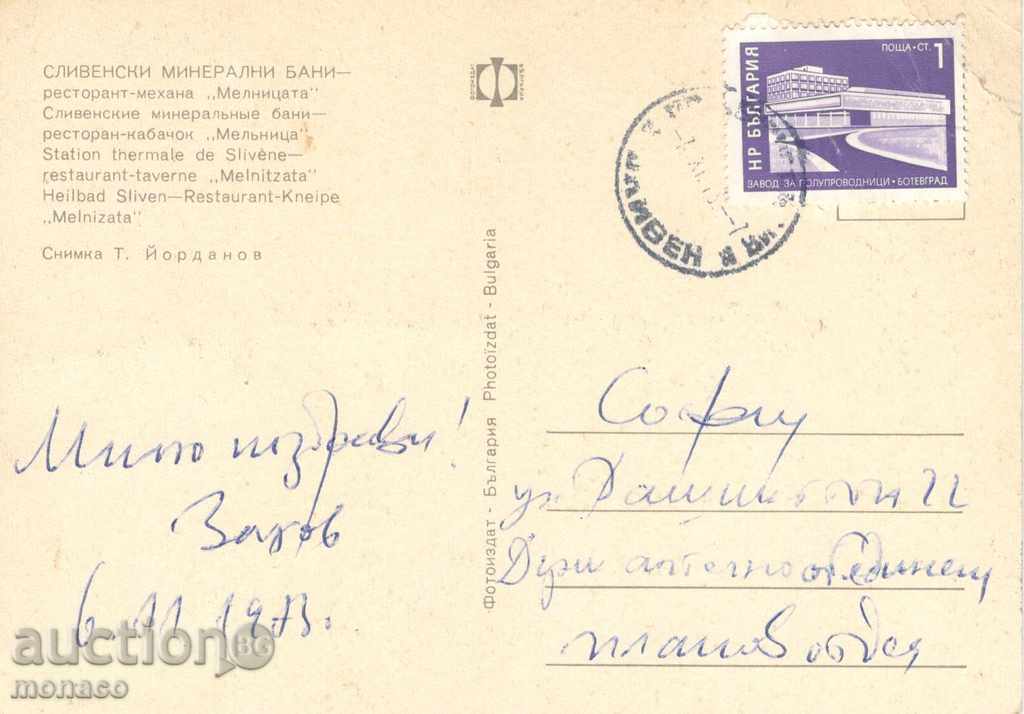 СЛИВЕНСКИ МИНЕРАЛНИ БАНИ—
ресторант-механа „Мелницата"
Сливенские минеральные бани—
ресторан-кабачок „Мельница"
Station thermale de Slivène—
restaurant-taverne „Melnitzata"
Heilbad Sliven—Restaurant-Kneipe
„Melnizata"
Снимка Т. Йорданов
Много поздрави!
6.11.1973.
Фотоиздат - България Photoïzdat - Bulgaria
ФОТОИЗДАТ
БЪЛГАРИЯ
ПОЩА·СТ. 1
НР БЪЛГАРИЯ
ЗАВОД ЗА ПОЛУПРОВОДНИЦИ·БОТЕВГРАД
СЛИВЕН
София
ул. 22
Държ аптечно обединени
планов отдел
auction BG
monaso